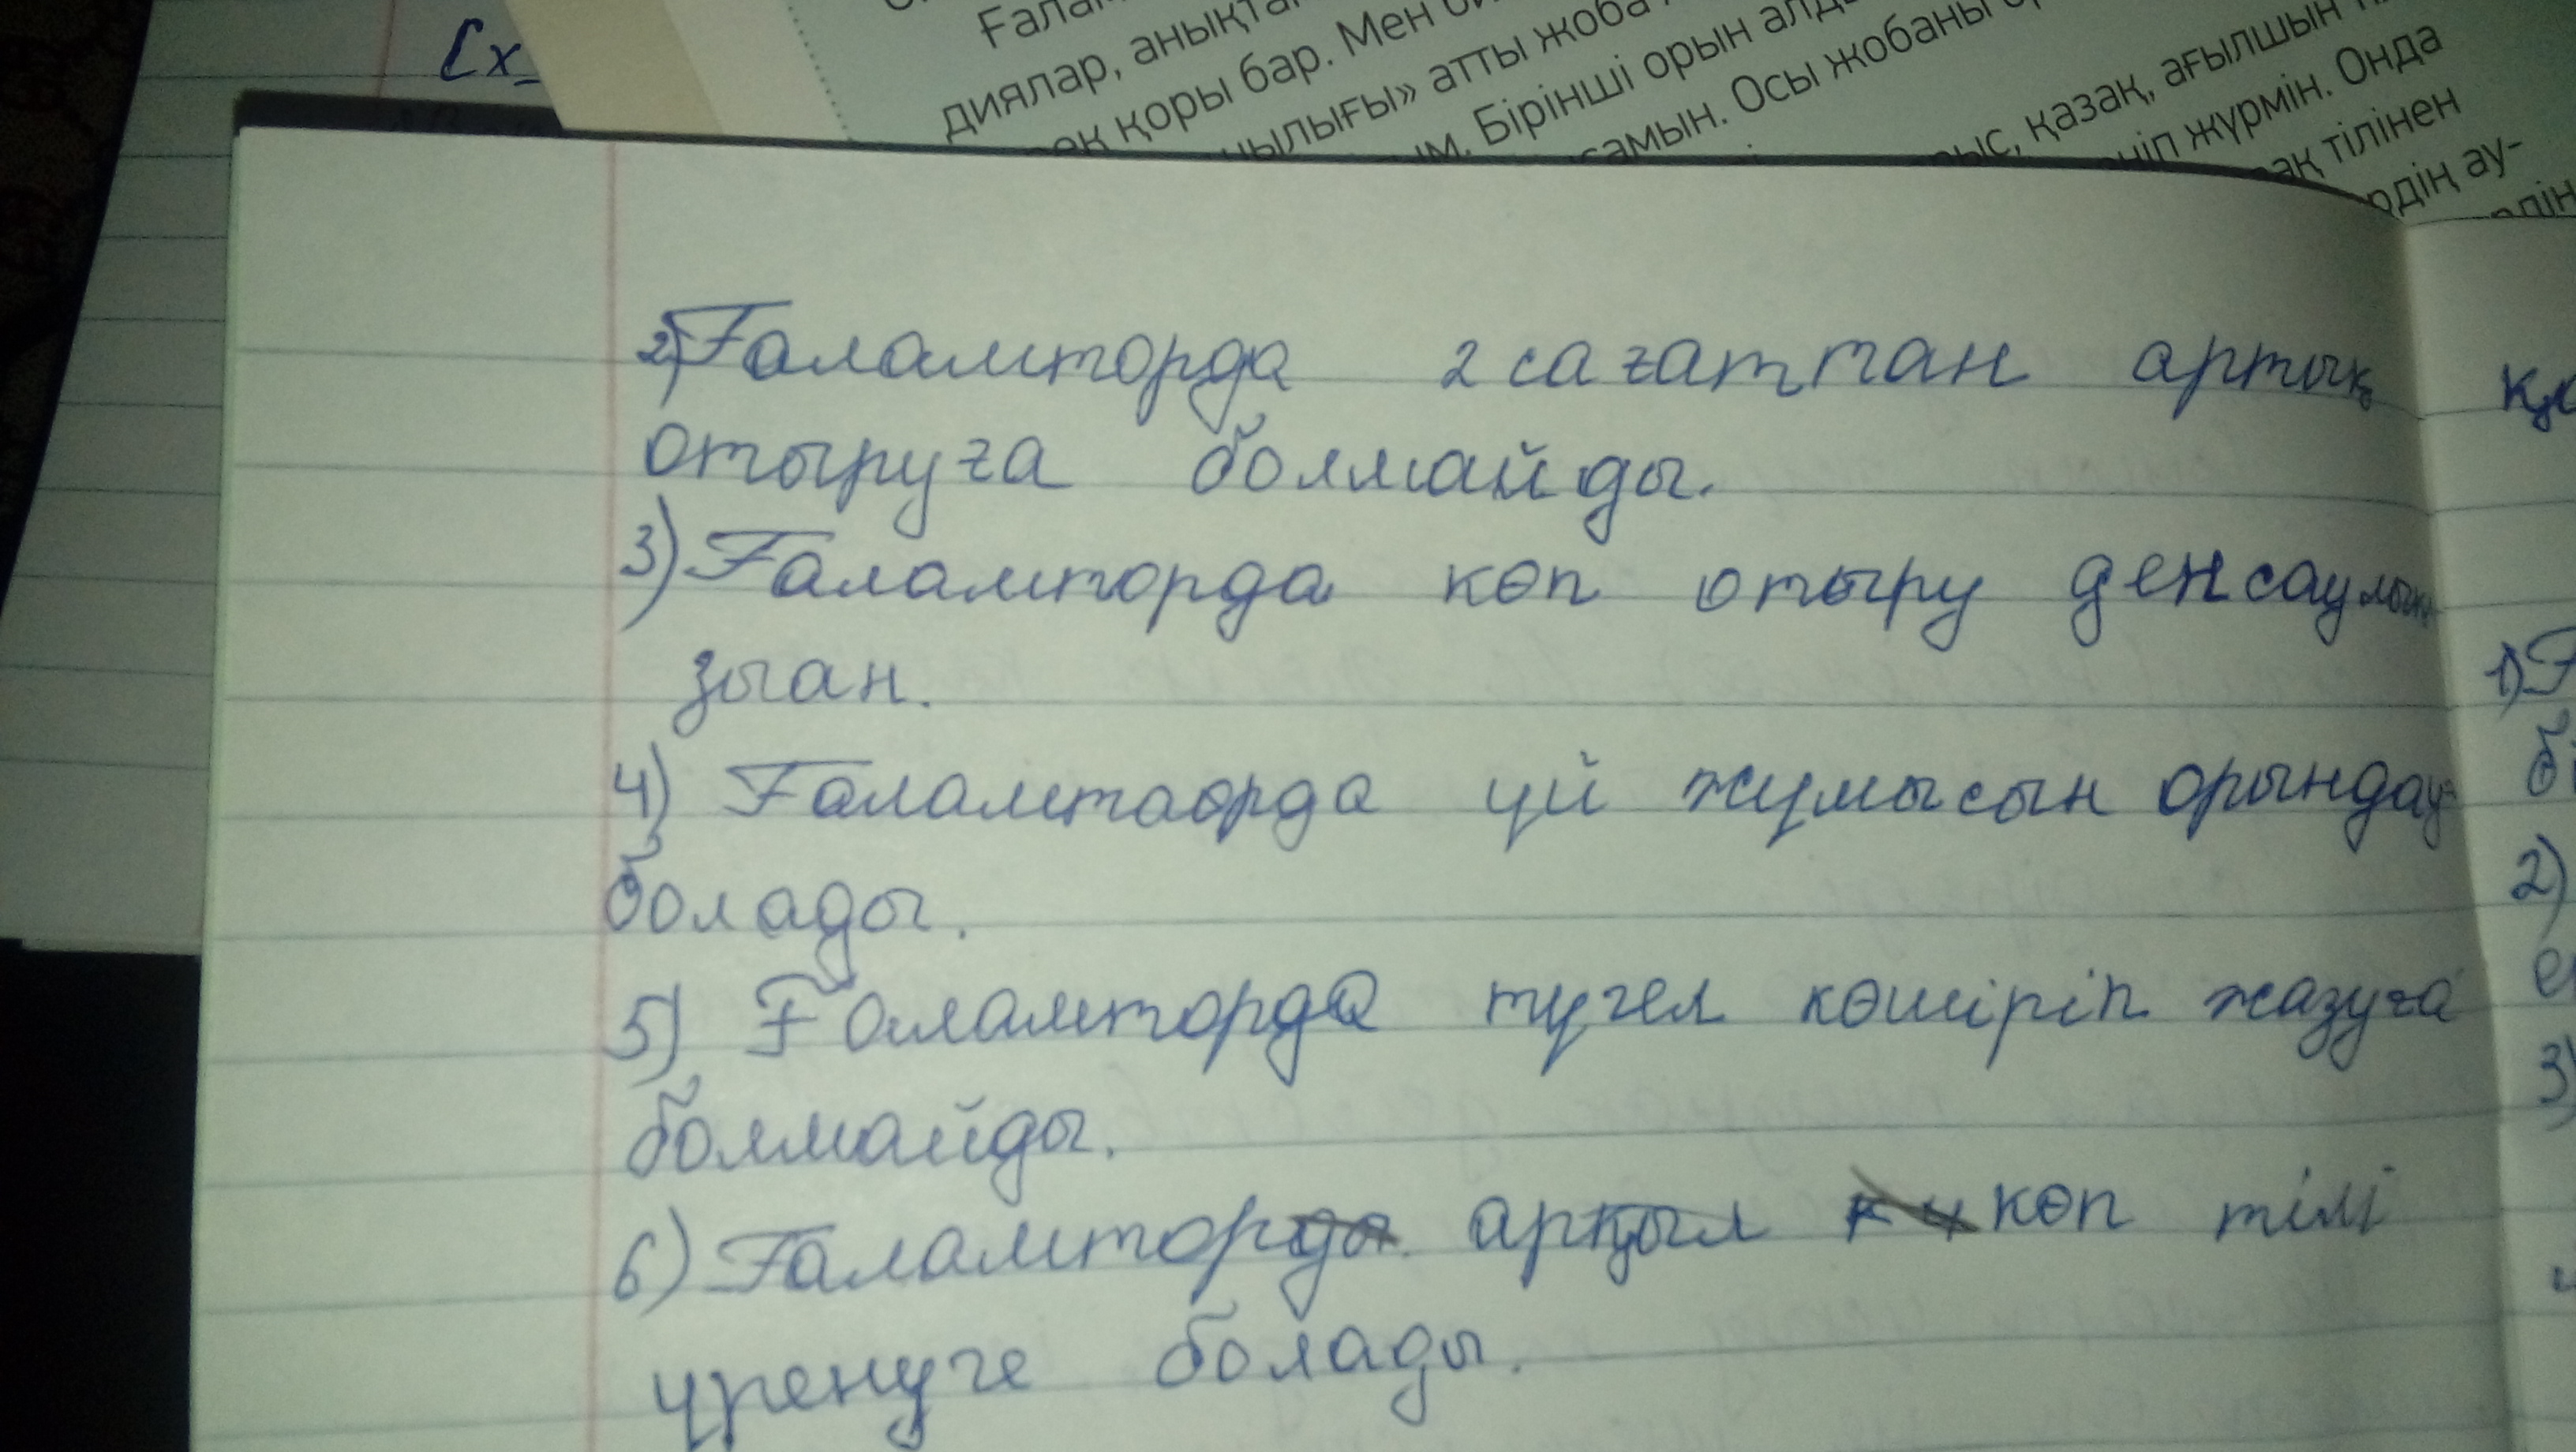 [x_
диялар, анықта
қоры бар. Мен
атты жоба
Бірінші орын алд
Осы жобаны
қазақ, ағылшын
жүрмін. Онда
тілінен
ау-
2) Ғаламторда 2 сағаттан артық
отыруға болмайды.
3) Ғаламторда көп отыру денсаулық
зыан.
4) Ғаламтаорда үй жұмысын орындау-
болады.
5) Ғаламторда түгел көшіріп жазуға
болмайды.
6) Ғаламторда арқыл көп тілі
үренуге болады.
1)
2)
3)